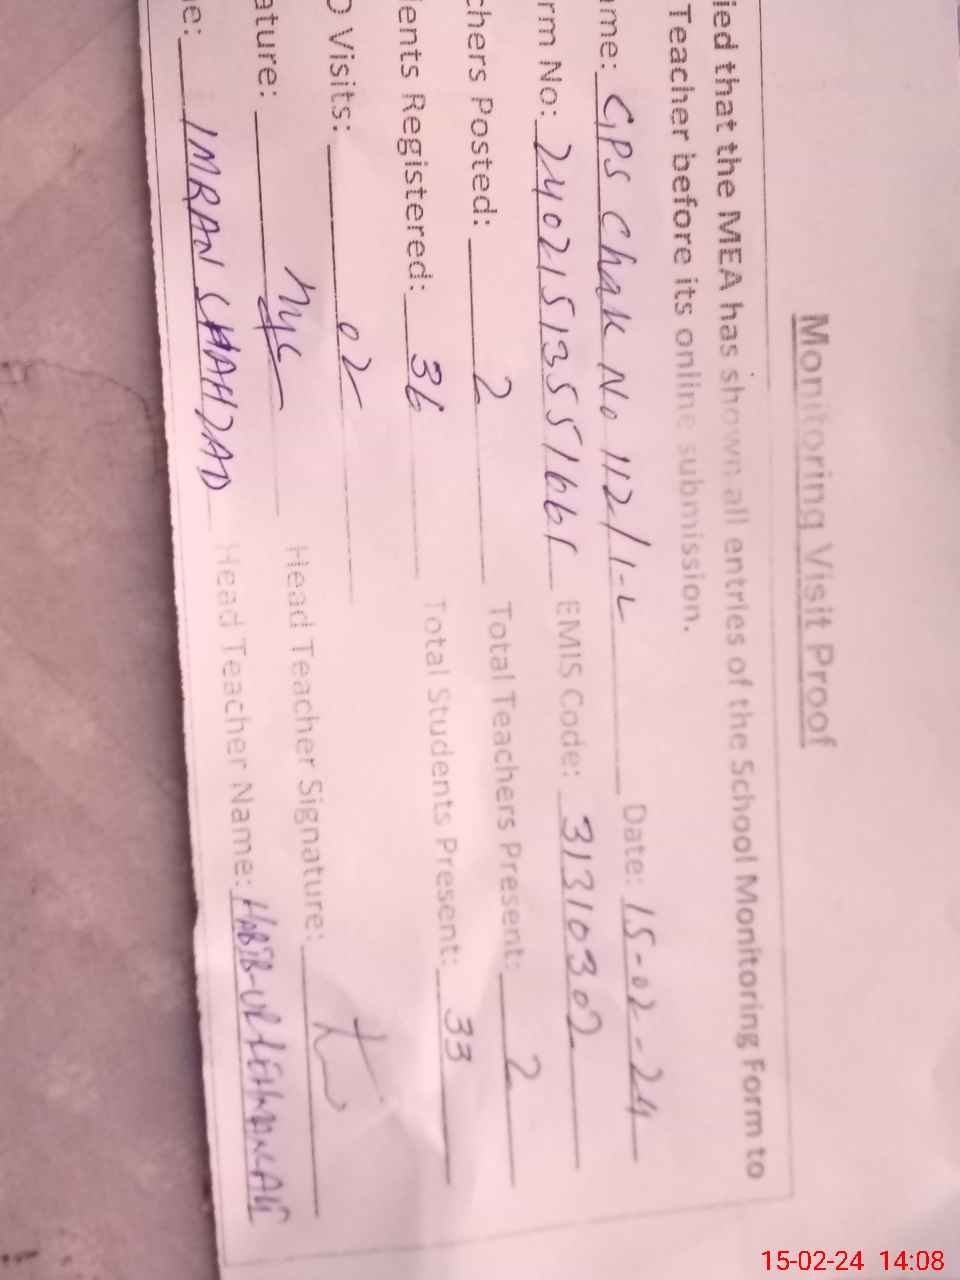 Monitoring Visit Proof
ied that the MEA has shown all entries of the School Monitoring Form to
Teacher before its online submission.
ame: GPS Chak No 112/1-L Date: 15-02-24
rm No: EMIS Code: 31310302
chers Posted: 2 Total Teachers Present: 2
ents Registered: 36 Total Students Present: 33
O Visits: 02
ature: Head Teacher Signature:
e: IMRAN SHAHZAD Head Teacher Name:
15-02-24 14:08